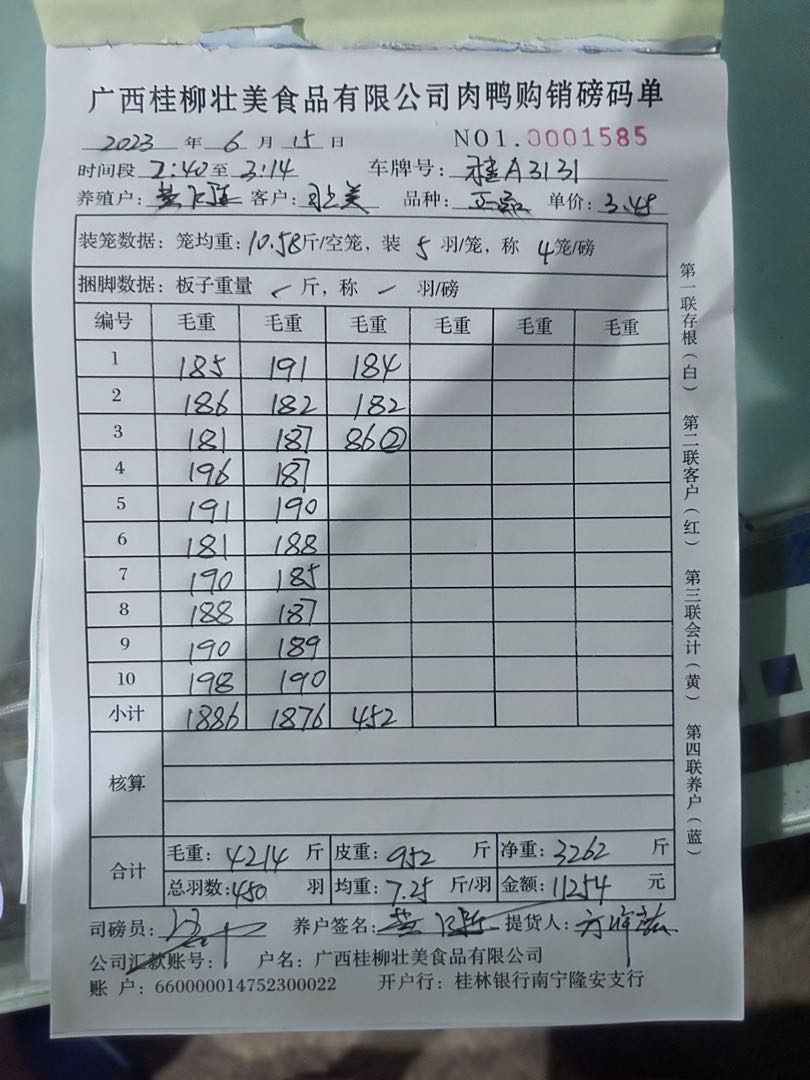 广西桂柳壮美食品有限公司肉鸭购销磅码单
2023 年 6 月 15 日 NO1.0001585
时间段 2:40至 3:14 车牌号: 桂A3131
养殖户: 客户: 壮美 品种: 单价: 3.45
装笼数据: 笼均重: 10.58斤/空笼, 装 5 羽/笼, 称 4笼/磅
捆脚数据: 板子重量 斤, 称 羽/磅
编号 毛重 毛重 毛重 毛重 毛重 毛重
1 185 191 184
2 186 182 182
3 181 187 86②
4 196 187
5 191 190
6 181 188
7 190 185
8 188 187
9 190 189
10 198 190
小计 1886 1876 452
核算
合计
毛重: 4214 斤 皮重: 952 斤 净重: 3262 斤
总羽数: 450 羽 均重: 7.25 斤/羽 金额: 11254 元
司磅员: 养户签名: 提货人:
公司汇款账号: 户名: 广西桂柳壮美食品有限公司
账 户: 660000014752300022 开户行: 桂林银行南宁隆安支行
第一联存根(白) 第二联客户(红) 第三联会计(黄) 第四联养户(蓝)